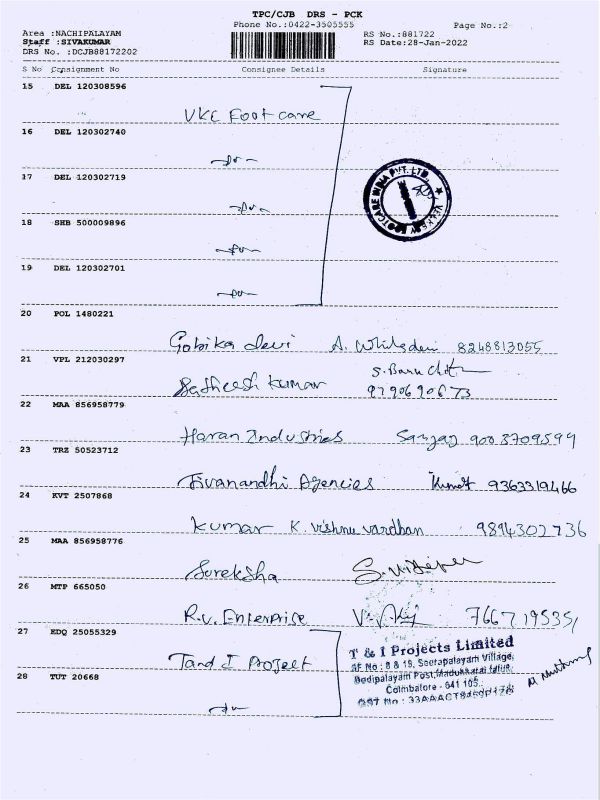 TPC/CJB DRS - PCK
Phone No.:0422-3505555 Page No.:2
Area :NACHIPALAYAM RS No.:881722
Staff :SIVAKUMAR RS Date:28-Jan-2022
DRS No. :DCJB88172202
S No Consignment No Consignee Details Signature
15 DEL 120308596
VKC Foot care
16 DEL 120302740
-do-
17 DEL 120302719
-do-
18 SHB 500009896
-do-
19 DEL 120302701
-do-
FOOTCARE INDIA PVT. LTD.
20 POL 1480221
Gobika devi A. 8248813055
21 VPL 212030297
Satheesh kumar S.
9790690673
22 MAA 856958779
Haran Industries Sanjay 9003709599
23 TRZ 50523712
Sivanandhi Agencies 9363319466
24 KVT 2507868
Kumar K. vishnu vardhan 9894302736
25 MAA 856958776
Sureksha
26 MTP 665050
R.V. Enterprise 766719535
27 EDQ 25055329
T and I Project
T & I Projects Limited
SF No : 8 & 19, Seerapalayam Village,
Bodipalayam Post, Madukkarai Taluk,
Coimbatore - 641 105.
GST No :
28 TUT 20668
-do-